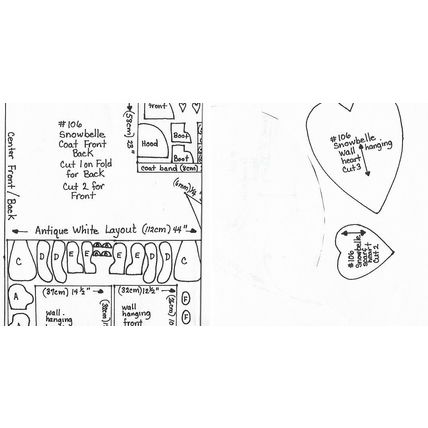 Center Front / Back
#106
Snowbelle
Coat Front
Back
Cut 1 on Fold
for Back
Cut 2 for
Front
(58cm) 23"
Front
Hood
Boot
Boot
coat band (8cm)
Antique White Layout (112cm) 44"
C D D E E D D C
A
(37cm) 14½"
(32cm) 12½"
wall
hanging
wall
hanging
front
F
F
#106
Snowbelle
Wall hanging
heart
Cut 3
#106
Snowbelle
heart
Cut 2